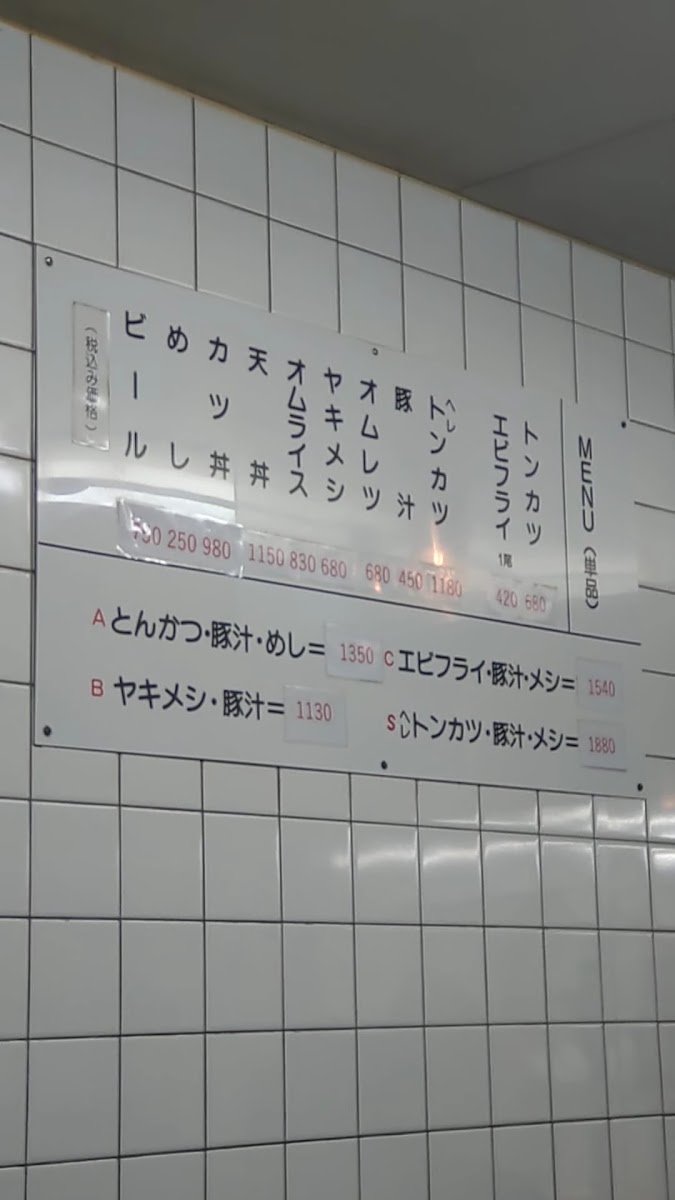 MENU（単品）
トンカツ 680
エビフライ 1尾 420
ヘレトンカツ 1180
豚汁 450
オムレツ 680
ヤキメシ 680
オムライス 830
天丼 1150
カツ丼 980
めし 250
ビール
（税込み価格）
A とんかつ・豚汁・めし= 1350
B ヤキメシ・豚汁= 1130
C エビフライ・豚汁・メシ= 1540
S ヘレトンカツ・豚汁・メシ= 1880